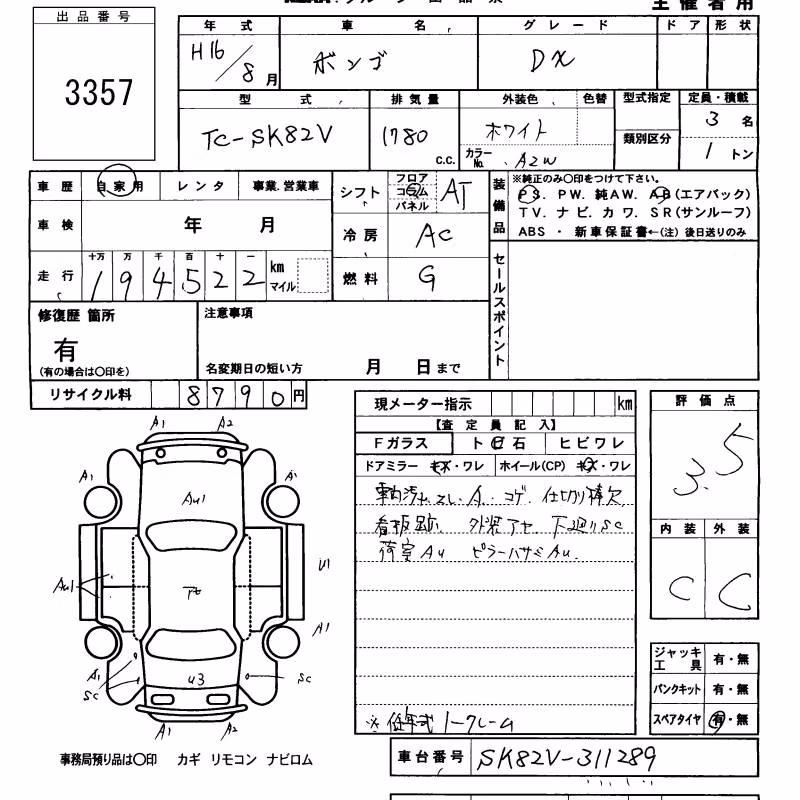 主催者用
出品番号
3357
年式 車名 グレード ドア 形状
H16/8月 ボンゴ DX
型式 排気量 外装色 色替 型式指定 定員・積載
TC-SK82V 1780 c.c. ホワイト 3名
類別区分
カラーNo. A2W 1トン
車歴 自家用 レンタ 事業.営業車 シフト フロア コラム パネル AT
装備品
※純正のみ○印をつけて下さい。
PS. PW. 純AW. AB(エアバック)
TV. ナビ. カワ. SR(サンルーフ)
ABS ・ 新車保証書←(注) 後日送りのみ
車検 年 月 冷房 AC
走行 十万 万 千 百 十 一
194522 km マイル 燃料 G
セールスポイント
修復歴 箇所 注意事項
有
(有の場合は○印を) 名変期日の短い方 月 日まで
リサイクル料 8790円
現メーター指示 km 評価点
3.5
【査定員記入】
Fガラス ト 石 ヒビワレ
ドアミラー キズ・ワレ ホイール(CP) キズ・ワレ
車内汚れ.スレ.A.コゲ. 仕切り棒欠
看板跡. 外装アセ. 下廻りSC
荷室AU ピラーハサミAU.
内装 外装
C C
A1 A2
A1 A1
AU1
U1
AU1
A1
A1 SC U3 SC
A1 A2
ジャッキ 工具 有・無
パンクキット 有・無
スペアタイヤ 有・無
※低年式 ノークレーム
事務局預り品は○印 カギ リモコン ナビロム
車台番号 SK82V-311289